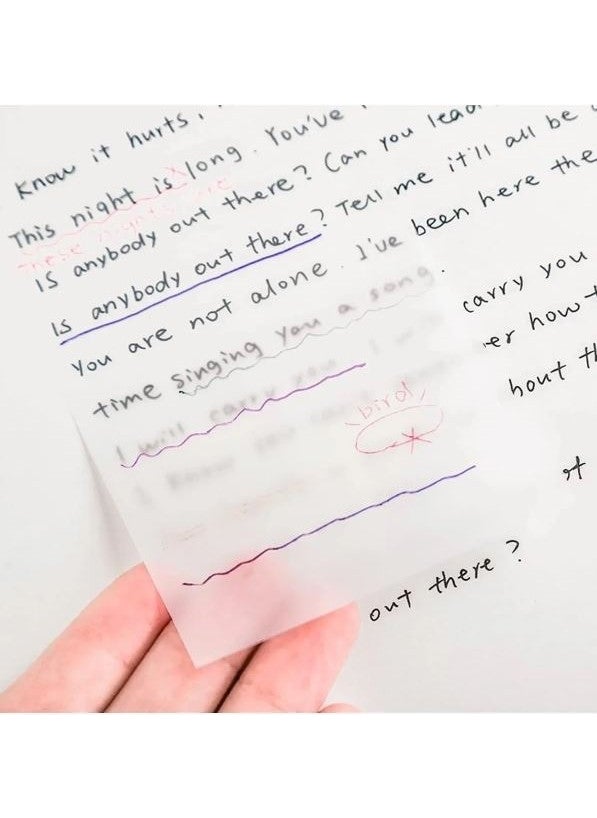 Know it hurts,
This night is long. You've
These nights are
Is anybody out there? Can you lead
Is anybody out there? Tell me it'll all be
You are not alone. I've been here the
time singing you a song.
I will carry you. I will carry you
er how t
bird
bout th
I know you
out there?